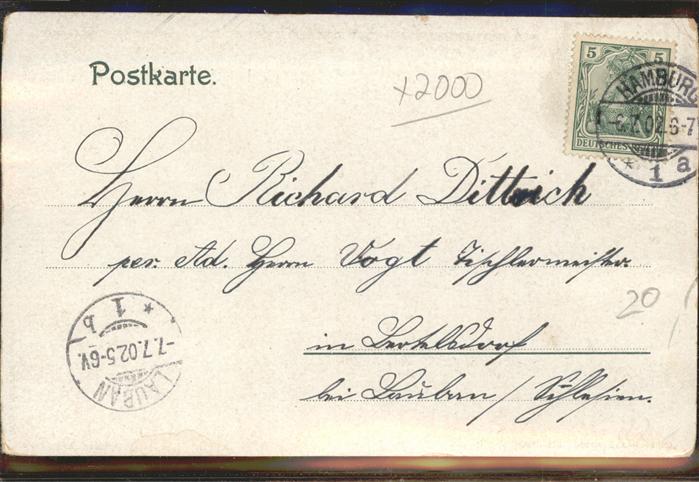 Postkarte.
x2000
5 5
DEUTSCHES
HAMBURG
-6.7.02.6-7
* 1 a
Herrn Richard Dittrich
per. Ad. Herrn Vogt Tischlermeister
20
in Bertelsdorf
bei Lauban / Schlesien.
LAUBAN
-7.7.02.5-6V.
* 1 b